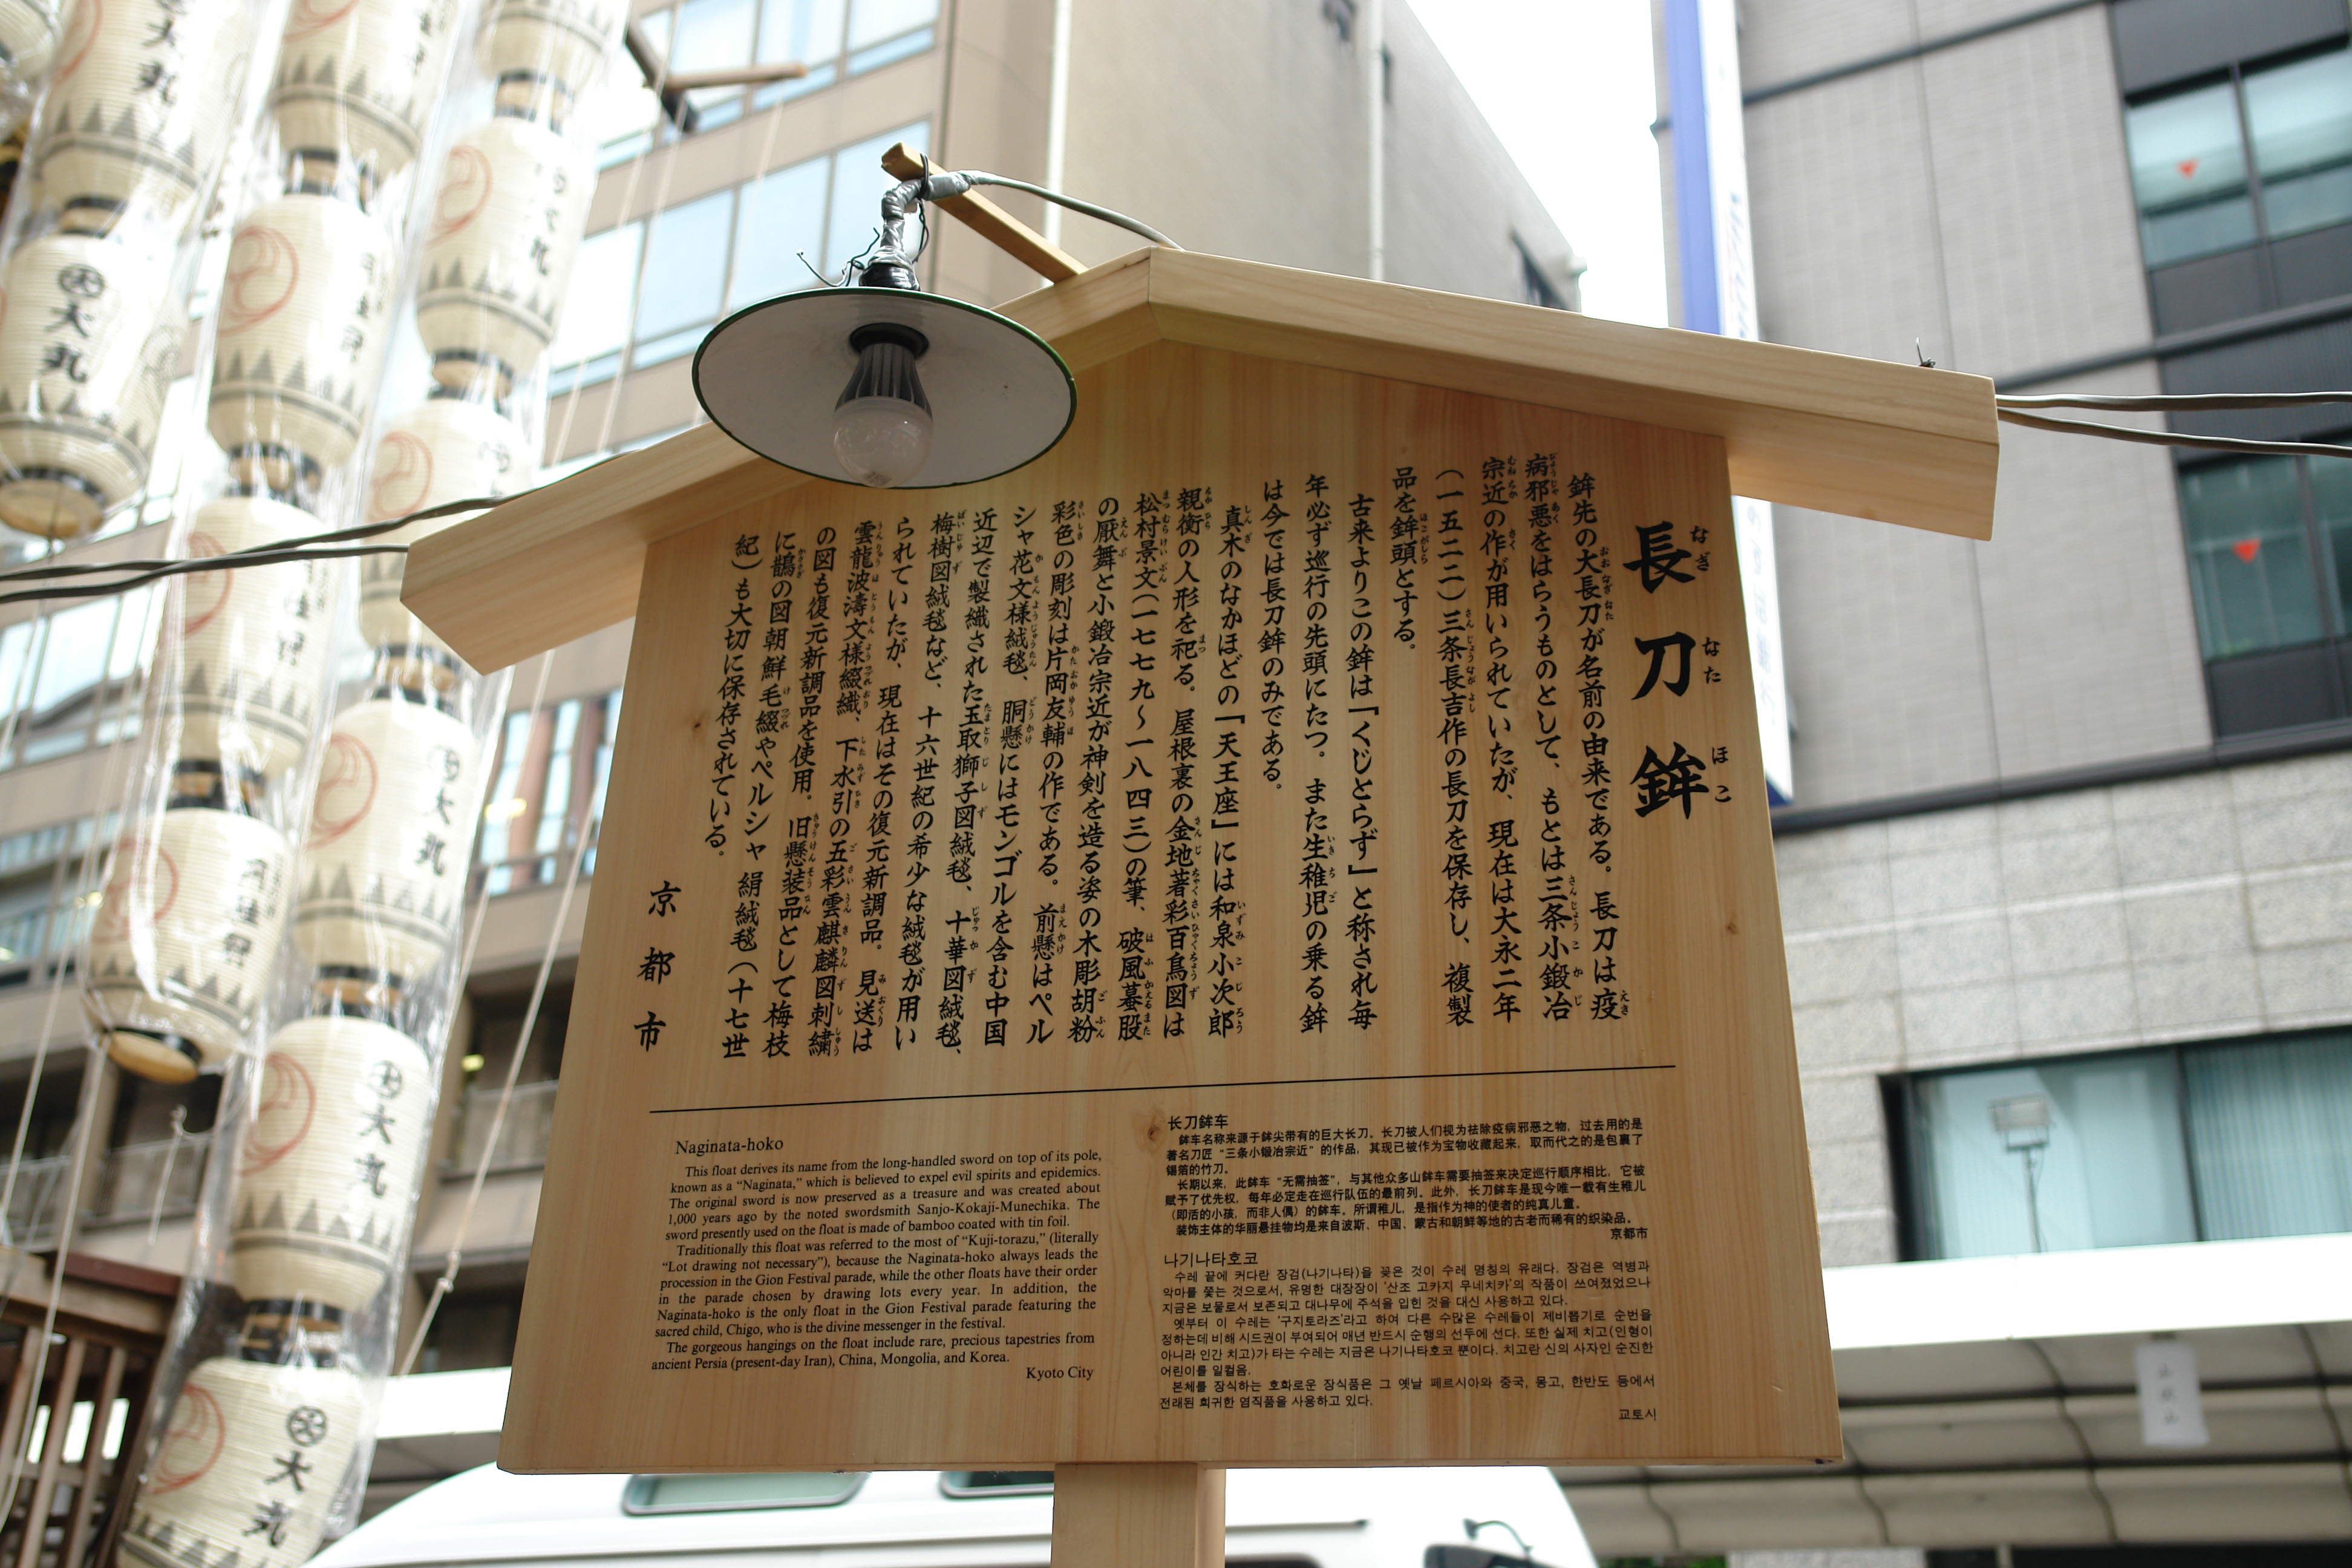 長刀鉾
なぎなたほこ
鉾先の大長刀が名前の由来である。長刀は疫
病邪悪をはらうものとして、もとは三条小鍛冶
宗近の作が用いられていたが、現在は大永二年
(一五二二)三条長吉作の長刀を保存し、複製
品を鉾頭とする。
古来よりこの鉾は「くじとらず」と称され毎
年必ず巡行の先頭にたつ。また生稚児の乗る鉾
は今では長刀鉾のみである。
真木のなかほどの「天王座」には和泉小次郎
親衡の人形を祀る。屋根裏の金地著彩百鳥図は
松村景文(一七七九〜一八四三)の筆、破風蟇股
の厭舞と小鍛冶宗近が神剣を造る姿の木彫胡粉
彩色の彫刻は片岡友輔の作である。前懸はペル
シャ花文様絨毯、胴懸にはモンゴルを含む中国
近辺で製織された玉取獅子図絨毯、十華図絨毯、
梅樹図絨毯など、十六世紀の希少な絨毯が用い
られていたが、現在はその復元新調品。見送は
雲龍波濤文様綴織、下水引の五彩雲麒麟図刺繍
の図も復元新調品を使用。旧懸装品として梅枝
に鵲の図朝鮮毛綴やペルシャ絹絨毯(十七世
紀)も大切に保存されている。
京都市
Naginata-hoko
This float derives its name from the long-handled sword on top of its pole,
known as a “Naginata,” which is believed to expel evil spirits and epidemics.
The original sword is now preserved as a treasure and was created about
1,000 years ago by the noted swordsmith Sanjo-Kokaji-Munechika. The
sword presently used on the float is made of bamboo coated with tin foil.
Traditionally this float was referred to the most of “Kuji-torazu,” (literally
“Lot drawing not necessary”), because the Naginata-hoko always leads the
procession in the Gion Festival parade, while the other floats have their order
in the parade chosen by drawing lots every year. In addition, the
Naginata-hoko is the only float in the Gion Festival parade featuring the
sacred child, Chigo, who is the divine messenger in the festival.
The gorgeous hangings on the float include rare, precious tapestries from
ancient Persia (present-day Iran), China, Mongolia, and Korea.
Kyoto City
长刀鉾车
鉾车名称来源于鉾尖带有的巨大长刀。长刀被人们视为祛除疫病邪恶之物，过去用的是
著名刀匠“三条小锻冶宗近”的作品，其现已被作为宝物收藏起来，取而代之的是包裹了
锡箔的竹刀。
长期以来，此鉾车“无需抽签”，与其他众多山鉾车需要抽签来决定巡行顺序相比，它被
赋予了优先权，每年必定走在巡行队伍的最前列。此外，长刀鉾车是现今唯一载有生稚儿
（即活的小孩，而非人偶）的鉾车。所谓稚儿，是指作为神的使者的纯真儿童。
装饰主体的华丽悬挂物均是来自波斯、中国、蒙古和朝鲜等地的古老而稀有的织染品。
京都市
나기나타호코
수레 끝에 커다란 장검(나기나타)을 꽂은 것이 수레 명칭의 유래다. 장검은 역병과
악마를 쫓는 것으로서, 유명한 대장장이 '산조 고카지 무네치카'의 작품이 쓰여졌었으나
지금은 보물로서 보존되고 대나무에 주석을 입힌 것을 대신 사용하고 있다.
옛부터 이 수레는 '구지토라즈'라고 하여 다른 수많은 수레들이 제비뽑기로 순번을
정하는데 비해 시드권이 부여되어 매년 반드시 순행의 선두에 선다. 또한 실제 치고(인형이
아니라 인간 치고)가 타는 수레는 지금은 나기나타호코 뿐이다. 치고란 신의 사자인 순진한
어린이를 일컬음.
본체를 장식하는 호화로운 장식품은 그 옛날 페르시아와 중국, 몽고, 한반도 등에서
전래된 희귀한 염직품을 사용하고 있다.
교토시
大丸
大丸
大丸
大丸
大丸